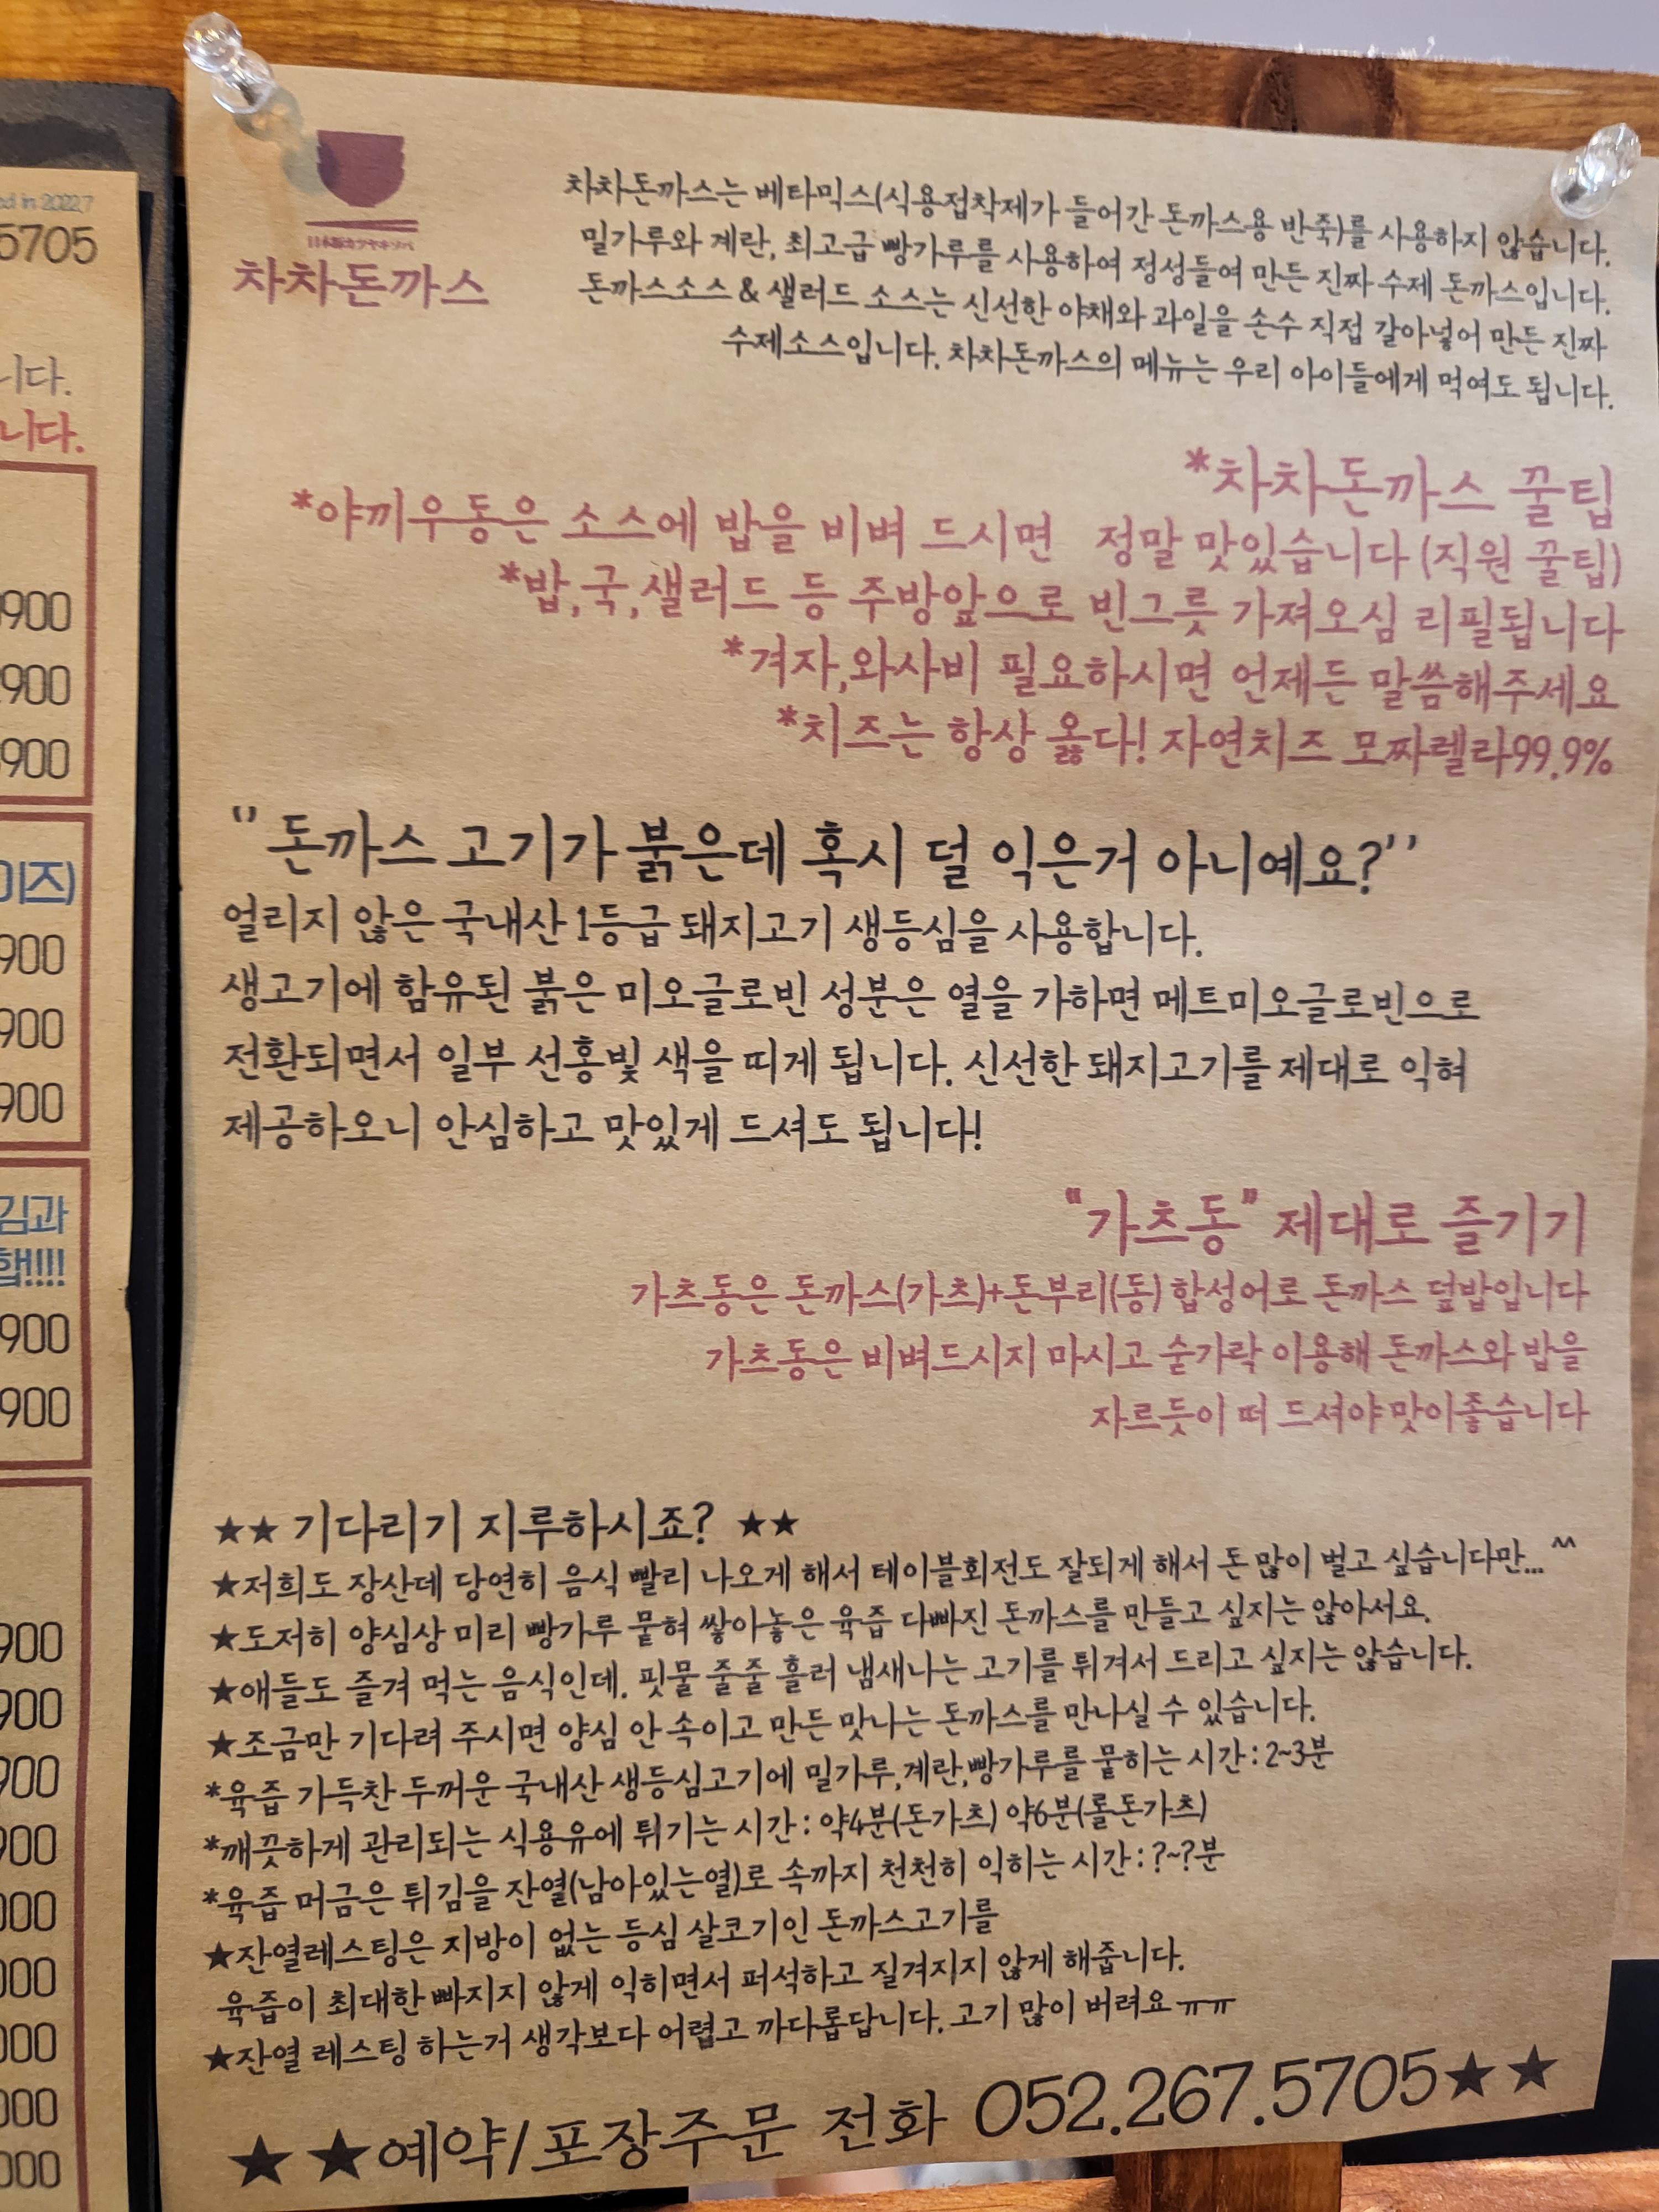 ed in 2022.7
5705
니다.
니다.
900
900
900
이즈)
900
900
900
김과
합!!!!
900
900
900
900
900
900
000
000
000
000
000
차차돈까스
차차돈까스는 베타믹스(식용접착제가 들어간 돈까스용 반죽)를 사용하지 않습니다.
밀가루와 계란, 최고급 빵가루를 사용하여 정성들여 만든 진짜 수제 돈까스입니다.
돈까스소스 & 샐러드 소스는 신선한 야채와 과일을 손수 직접 갈아넣어 만든 진짜
수제소스입니다. 차차돈까스의 메뉴는 우리 아이들에게 먹여도 됩니다.
*차차돈까스 꿀팁
*야끼우동은 소스에 밥을 비벼 드시면 정말 맛있습니다 (직원 꿀팁)
*밥,국,샐러드 등 주방앞으로 빈그릇 가져오심 리필됩니다
*겨자,와사비 필요하시면 언제든 말씀해주세요
*치즈는 항상 옳다! 자연치즈 모짜렐라99.9%
"돈까스 고기가 붉은데 혹시 덜 익은거 아니예요?"
얼리지 않은 국내산 1등급 돼지고기 생등심을 사용합니다.
생고기에 함유된 붉은 미오글로빈 성분은 열을 가하면 메트미오글로빈으로
전환되면서 일부 선홍빛 색을 띠게 됩니다. 신선한 돼지고기를 제대로 익혀
제공하오니 안심하고 맛있게 드셔도 됩니다!
"가츠동" 제대로 즐기기
가츠동은 돈까스(가츠)+돈부리(동) 합성어로 돈까스 덮밥입니다
가츠동은 비벼드시지 마시고 숟가락 이용해 돈까스와 밥을
자르듯이 떠 드셔야 맛이좋습니다
★★ 기다리기 지루하시죠? ★★
★저희도 장산데 당연히 음식 빨리 나오게 해서 테이블회전도 잘되게 해서 돈 많이 벌고 싶습니다만... ^^
★도저히 양심상 미리 빵가루 뭍혀 쌓아놓은 육즙 다빠진 돈까스를 만들고 싶지는 않아서요.
★애들도 즐겨 먹는 음식인데. 핏물 줄줄 흘러 냄새나는 고기를 튀겨서 드리고 싶지는 않습니다.
★조금만 기다려 주시면 양심 안 속이고 만든 맛나는 돈까스를 만나실 수 있습니다.
*육즙 가득찬 두꺼운 국내산 생등심고기에 밀가루,계란,빵가루를 뭍히는 시간 : 2~3분
*깨끗하게 관리되는 식용유에 튀기는 시간 : 약4분(돈가츠) 약6분(롤돈가츠)
*육즙 머금은 튀김을 잔열(남아있는열)로 속까지 천천히 익히는 시간 : ?~?분
★잔열레스팅은 지방이 없는 등심 살코기인 돈까스고기를
육즙이 최대한 빠지지 않게 익히면서 퍼석하고 질겨지지 않게 해줍니다.
★잔열 레스팅 하는거 생각보다 어렵고 까다롭답니다. 고기 많이 버려요 ㅠㅠ
★★예약/포장주문 전화 052.267.5705★★